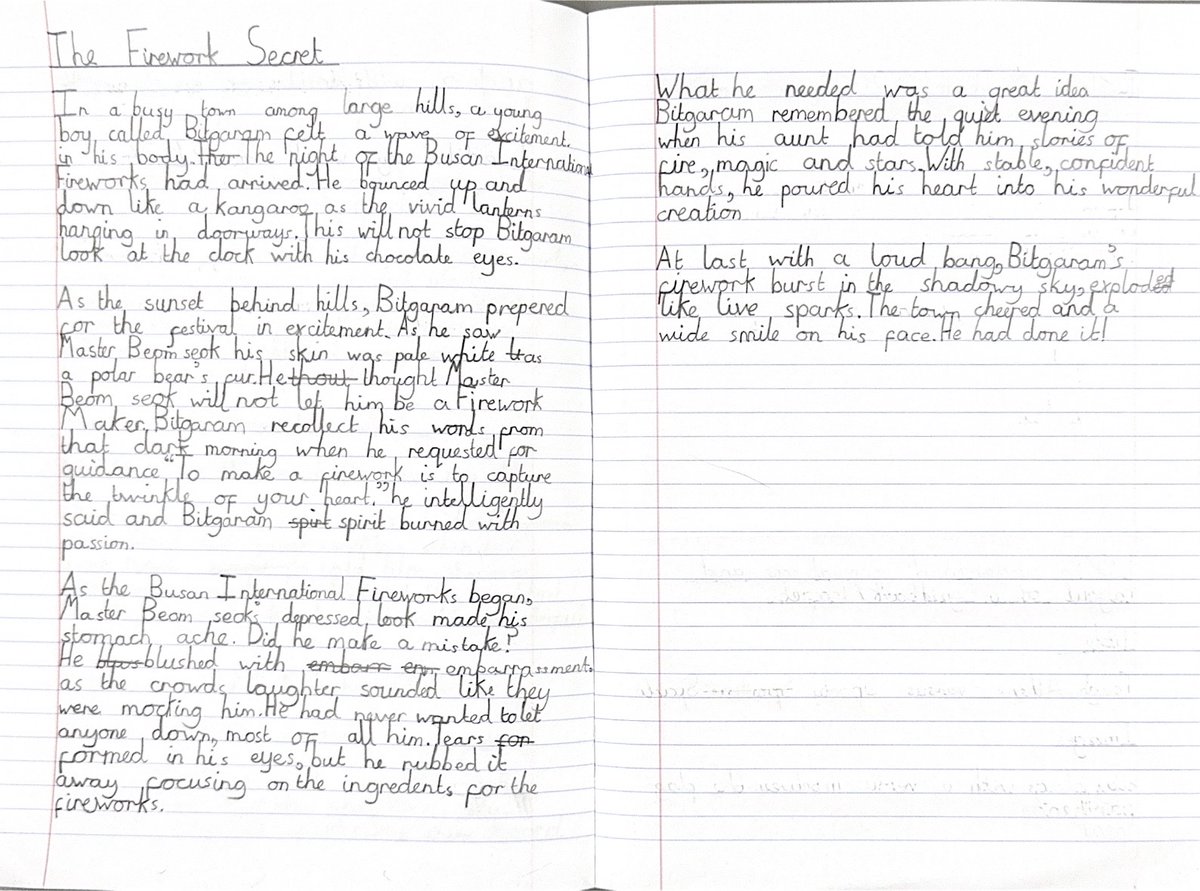 The Firework Secret
In a busy town among large hills, a young
boy called Bitgaram felt a wave of excitement.
in his body. ther The night of the Busan International
Fireworks had arrived. He bounced up and
down like a kangaroo as the vivid lanterns
hanging in doorways. This will not stop Bitgaram
look at the clock with his chocolate eyes.
As the sunset behind hills, Bitgaram prepered
for the festival in excitement. As he saw
Master Beom seok his skin was pale white tas
a polar bear's fur. He thout thought Master
Beom seok will not let him be a Firework
Maker. Bitgaram recollect his words from
that dark morning when he requested for
guidance "To make a firework is to capture
the twinkle of your heart." he intelligently
said and Bitgaram spirt spirit burned with
passion.
As the Busan International Fireworks began,
Master Beom seok's depressed look made his
stomach ache. Did he make a mistake?
He blus blushed with embarr em embarrassment.
as the crowds laughter sounded like they
were mocking him. He had never wanted to let
anyone down, most of all him. Tears for
formed in his eyes, but he rubbed it
away focusing on the ingredents for the
fireworks.
What he needed was a great idea
Bitgaram remembered the quiet evening
when his aunt had told him stories of
fire, magic and stars. With stable, confident
hands, he poured his heart into his wonderful
creation
At last with a loud bang, Bitgaram's
firework burst in the shadowy sky, exploded
like live sparks. The town cheered and a
wide smile on his face. He had done it!